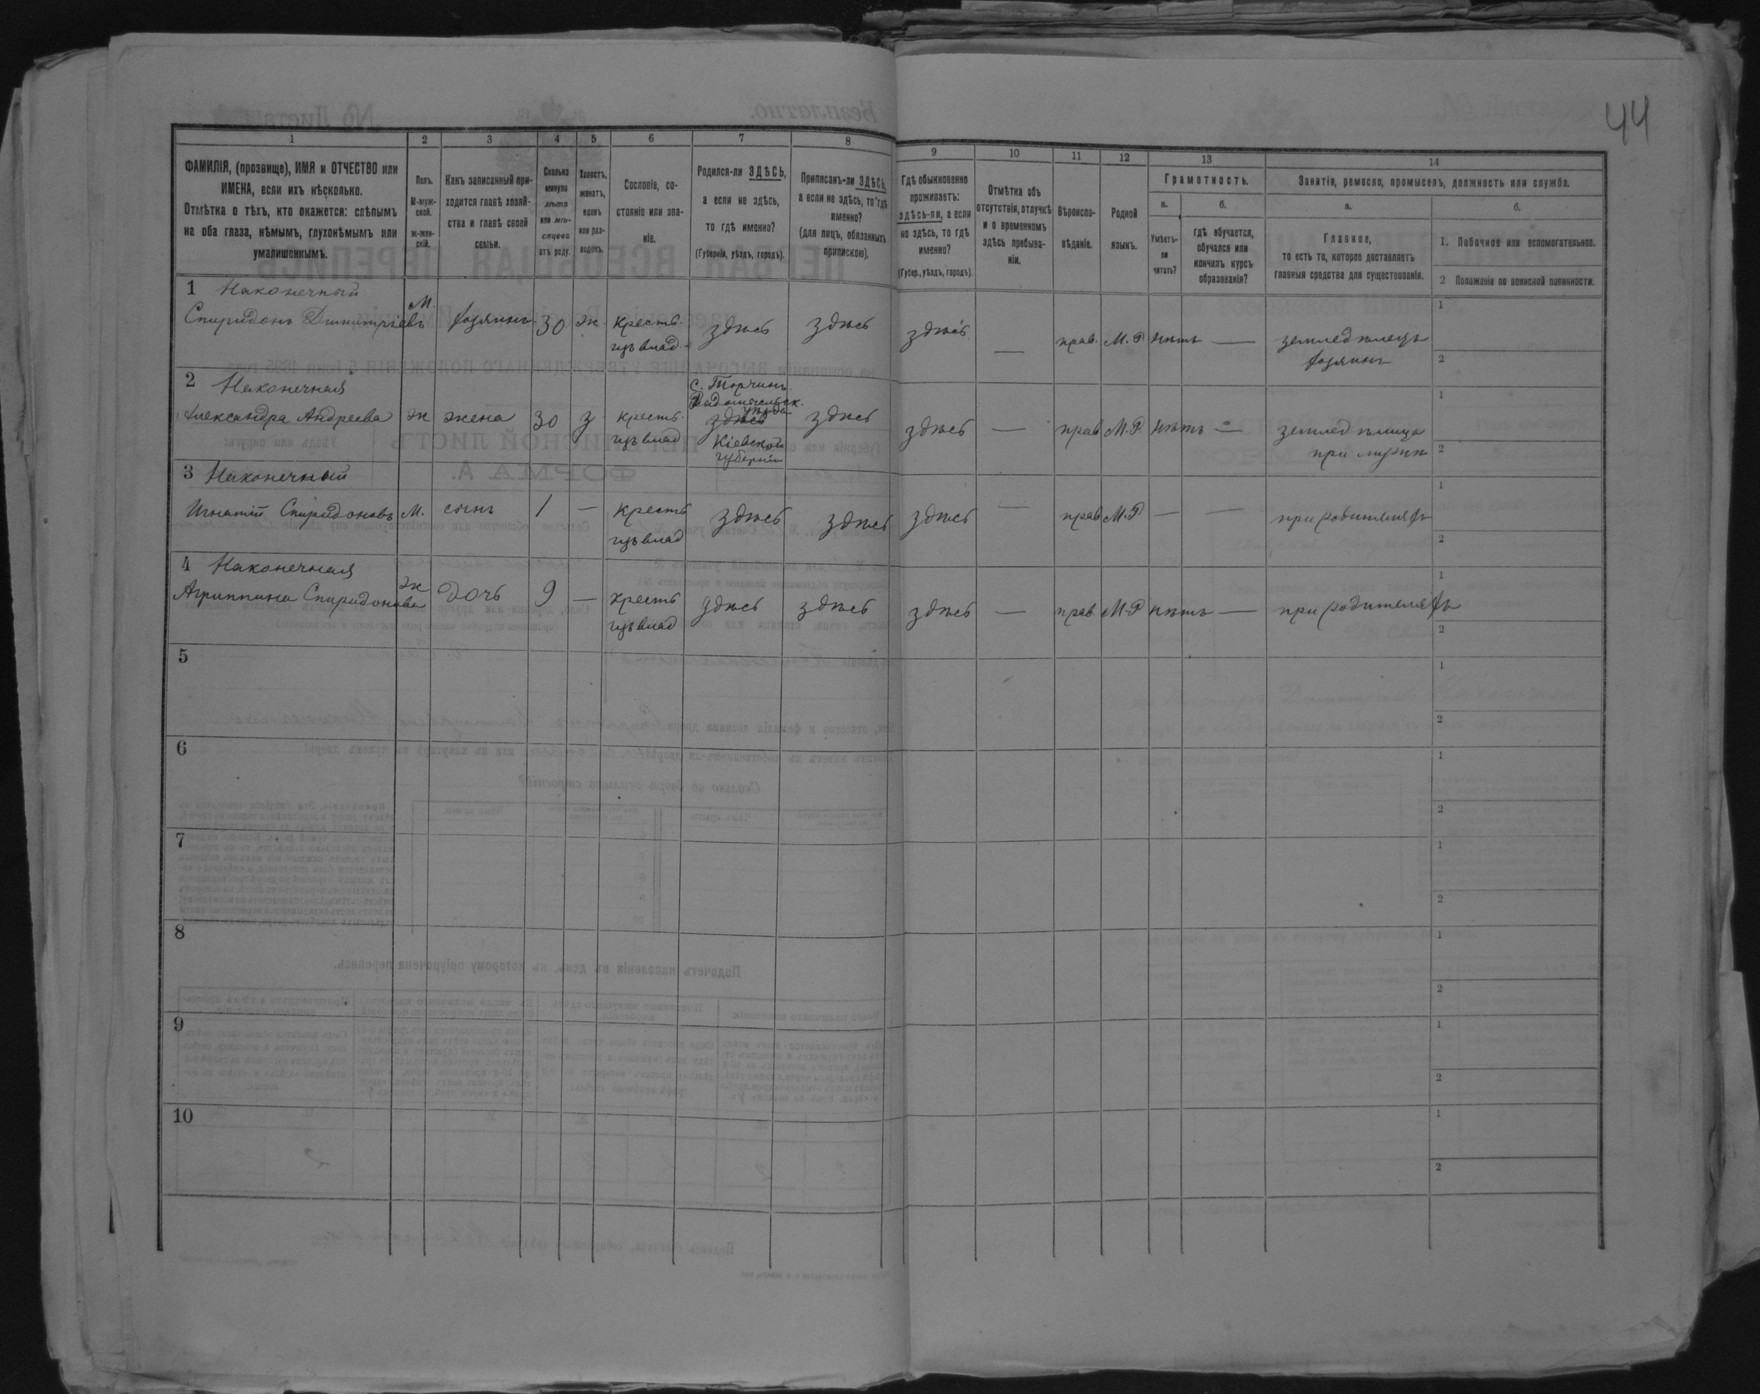 44
1 2 3 4 5 6 7 8 9 10 11 12 13 14
ФАМИЛІЯ, (прозвище), ИМЯ и ОТЧЕСТВО или
ИМЕНА, если ихъ нѣсколько.
Отмѣтка о тѣхъ, кто окажется: слѣпымъ
на оба глаза, нѣмымъ, глухонѣмымъ или
умалишеннымъ.
Полъ.
М-муж-
ской.
Ж-жен-
скій.
Какъ записанный при-
ходится главѣ хозяй-
ства и главѣ своей
семьи.
Сколько
минуло
лѣтъ
или мѣ-
сяцевъ
отъ роду.
Холостъ,
женатъ,
вдовъ
или раз-
веденъ.
Сословіе, со-
стояніе или зва-
ніе.
Родился-ли ЗДѢСЬ,
а если не здѣсь,
то гдѣ именно?
(Губернія, уѣздъ, городъ).
Приписанъ-ли ЗДѢСЬ,
а если не здѣсь, то гдѣ
именно?
(для лицъ, обязанныхъ
припискою).
Гдѣ обыкновенно
проживаетъ:
здѣсь-ли, а если
не здѣсь, то гдѣ
именно?
(Губер., уѣздъ, городъ).
Отмѣтка объ
отсутствіи, отлучкѣ
и о временномъ
здѣсь пребыва-
ніи.
Вѣроиспо-
вѣданіе.
Родной
языкъ.
Грамотность.
а.
Умѣетъ-
ли
читать?
б.
гдѣ обучается,
обучался или
кончилъ курсъ
образованія?
Занятіе, ремесло, промыселъ, должность или служба.
а.
Главное,
то есть то, которое доставляетъ
главныя средства для существованія.
б.
1. Побочное или вспомогательное.
2 Положеніе по воинской повинности.
1 Наконечный
Спиридонъ Димитріевъ М хозяинъ 30 ж. крестъ. здѣсь здѣсь здѣсь — прав. М.Р. нѣтъ — земледѣлецъ 1
изъ влад. хозяинъ 2
2 Наконечная с. Торчинъ
Радомысльск.
уѣзда
Александра Андреева ж жена 30 з крестъ. здѣсь здѣсь здѣсь — прав М.Р. нѣтъ — земледѣлица 1
изъ влад Кіевской при мужѣ 2
губерніи
3 Наконечный
Игнатій Спиридоновъ М. сынъ 1 — крестъ здѣсь здѣсь здѣсь — прав М.Р — — при родителяхъ 1
изъ влад 2
4 Наконечная
Агриппина Спиридонова ж дочь 9 — крестъ здѣсь здѣсь здѣсь — прав М.Р нѣтъ — при родителяхъ 1
изъ влад 2
5 1
2
6 1
2
7 1
2
8 1
2
9 1
2
10 1
2